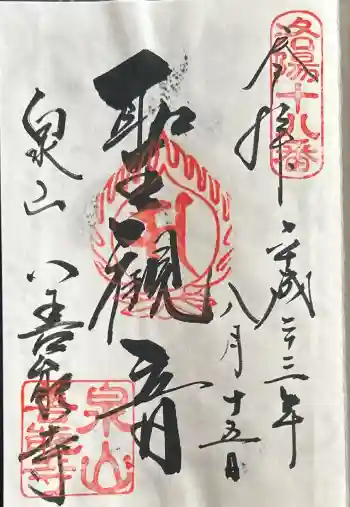 洛陽十八番
奉拝
平成二十三年
八月十五日
聖観音
泉山
善能寺
泉山
善能寺